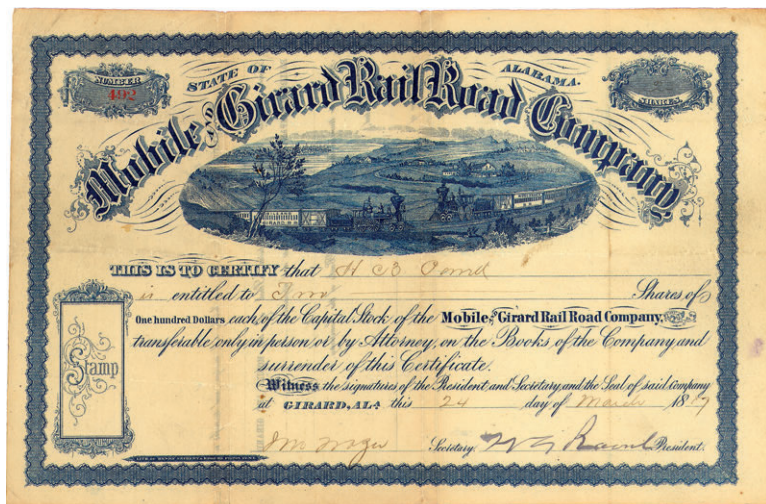 NUMBER
492
STATE OF ALABAMA.
SHARES.
Mobile and Girard Rail Road Company
GIRARD R.R.
THIS IS TO CERTIFY that H
is entitled to Two Shares of
One hundred Dollars each, of the Capital Stock of the Mobile and Girard Rail Road Company,
transferable only in person or by Attorney, on the Books of the Company and
surrender of this Certificate.
Stamp
Witness the signatures of the President and Secretary and the Seal of said Company
at GIRARD, ALA this 24 day of March 18
Secretary. President.